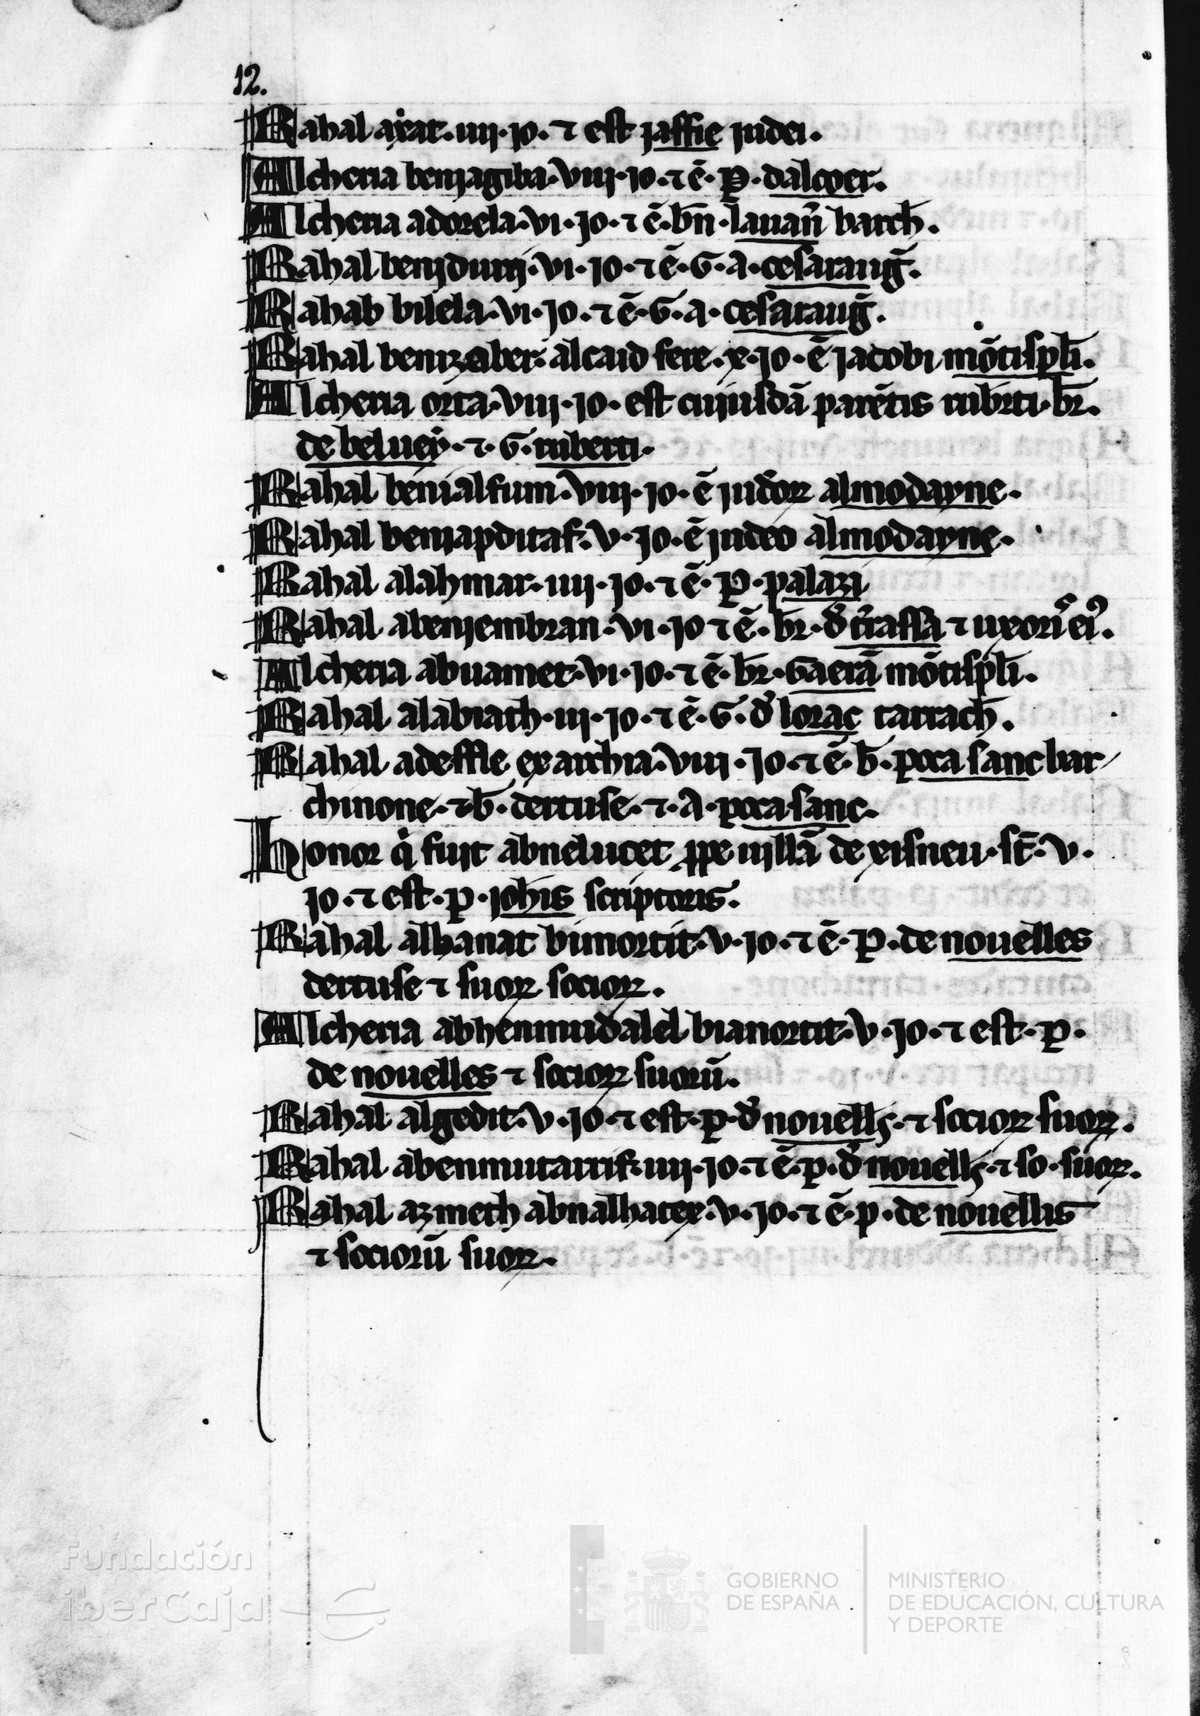 12.
Rahal axat. iiii. jo. ⁊ est jaffie judei.
Alcheria beniagiba. viii. jo. ⁊ ē. P. dalcoer.
Alcheria adorela. vi. jo. ⁊ ē. bn̄. lauan̄ barch̄.
Rahal benidurij. vi. jo. ⁊ ē. G. a. cesarauḡ.
Rahab bilela. vi. jo. ⁊ ē. G. a. cesarauḡ.
Rahal benizaber. alcaid fere. x. jo. ē jacobi mōtispl̄i.
Alcheria orta. viii. jo. est cuiusdā parētis rub̄rti. br̄.
de beluey. ⁊. G. ruberti.
Rahal benialfum. viii. jo. ē iud̄oꝝ almodayne.
Rahal beniapditaf. v. jo. ē judeo almodayne.
Rahal alahmar. iiii. jo. ⁊ ē. P. palazi
Rahal abeniembran. vi. jo ⁊ ē. br̄. d̄
Alcheria abuamet. vi. jo. ⁊ ē. br̄. Gaerā mōtispl̄i.
Rahal alabiach. iii. jo. ⁊ ē. G. d̄ lorac tarrach̄.
Rahal adeffle exarchia. viii. jo. ⁊ ē. b̄. poca sanc bar
chinone. ⁊ b̄. dertuse. ⁊. A. poca sanc.
Honor q̄ fuit abnelucet ꝓpe uillā de xisneu. st̄. v.
jo. ⁊ est. p. joh̄is scriptoris.
Rahal alhanat bimortit. v. jo. ⁊ ē. P. de nouelles
dertuse ⁊ suoꝝ socioꝝ.
Alcheria abhenmudalel bianortit. v. jo. ⁊ est. p.
de nouelles ⁊ socioꝝ suorū.
Rahal algedit. v. jo. ⁊ est. p. d̄ nouell̄s. ⁊ socioꝝ suoꝝ.
Rahal abenmutarrif. iiii. jo. ⁊ ē. p. d̄ nouell̄s. ⁊ so. suoꝝ.
Rahal azmeth abnalhatex. v. jo. ⁊ ē. p. de nouellis
⁊ sociorū suoꝝ.
Fundación
iberCaja
GOBIERNO
DE ESPAÑA
MINISTERIO
DE EDUCACIÓN, CULTURA
Y DEPORTE